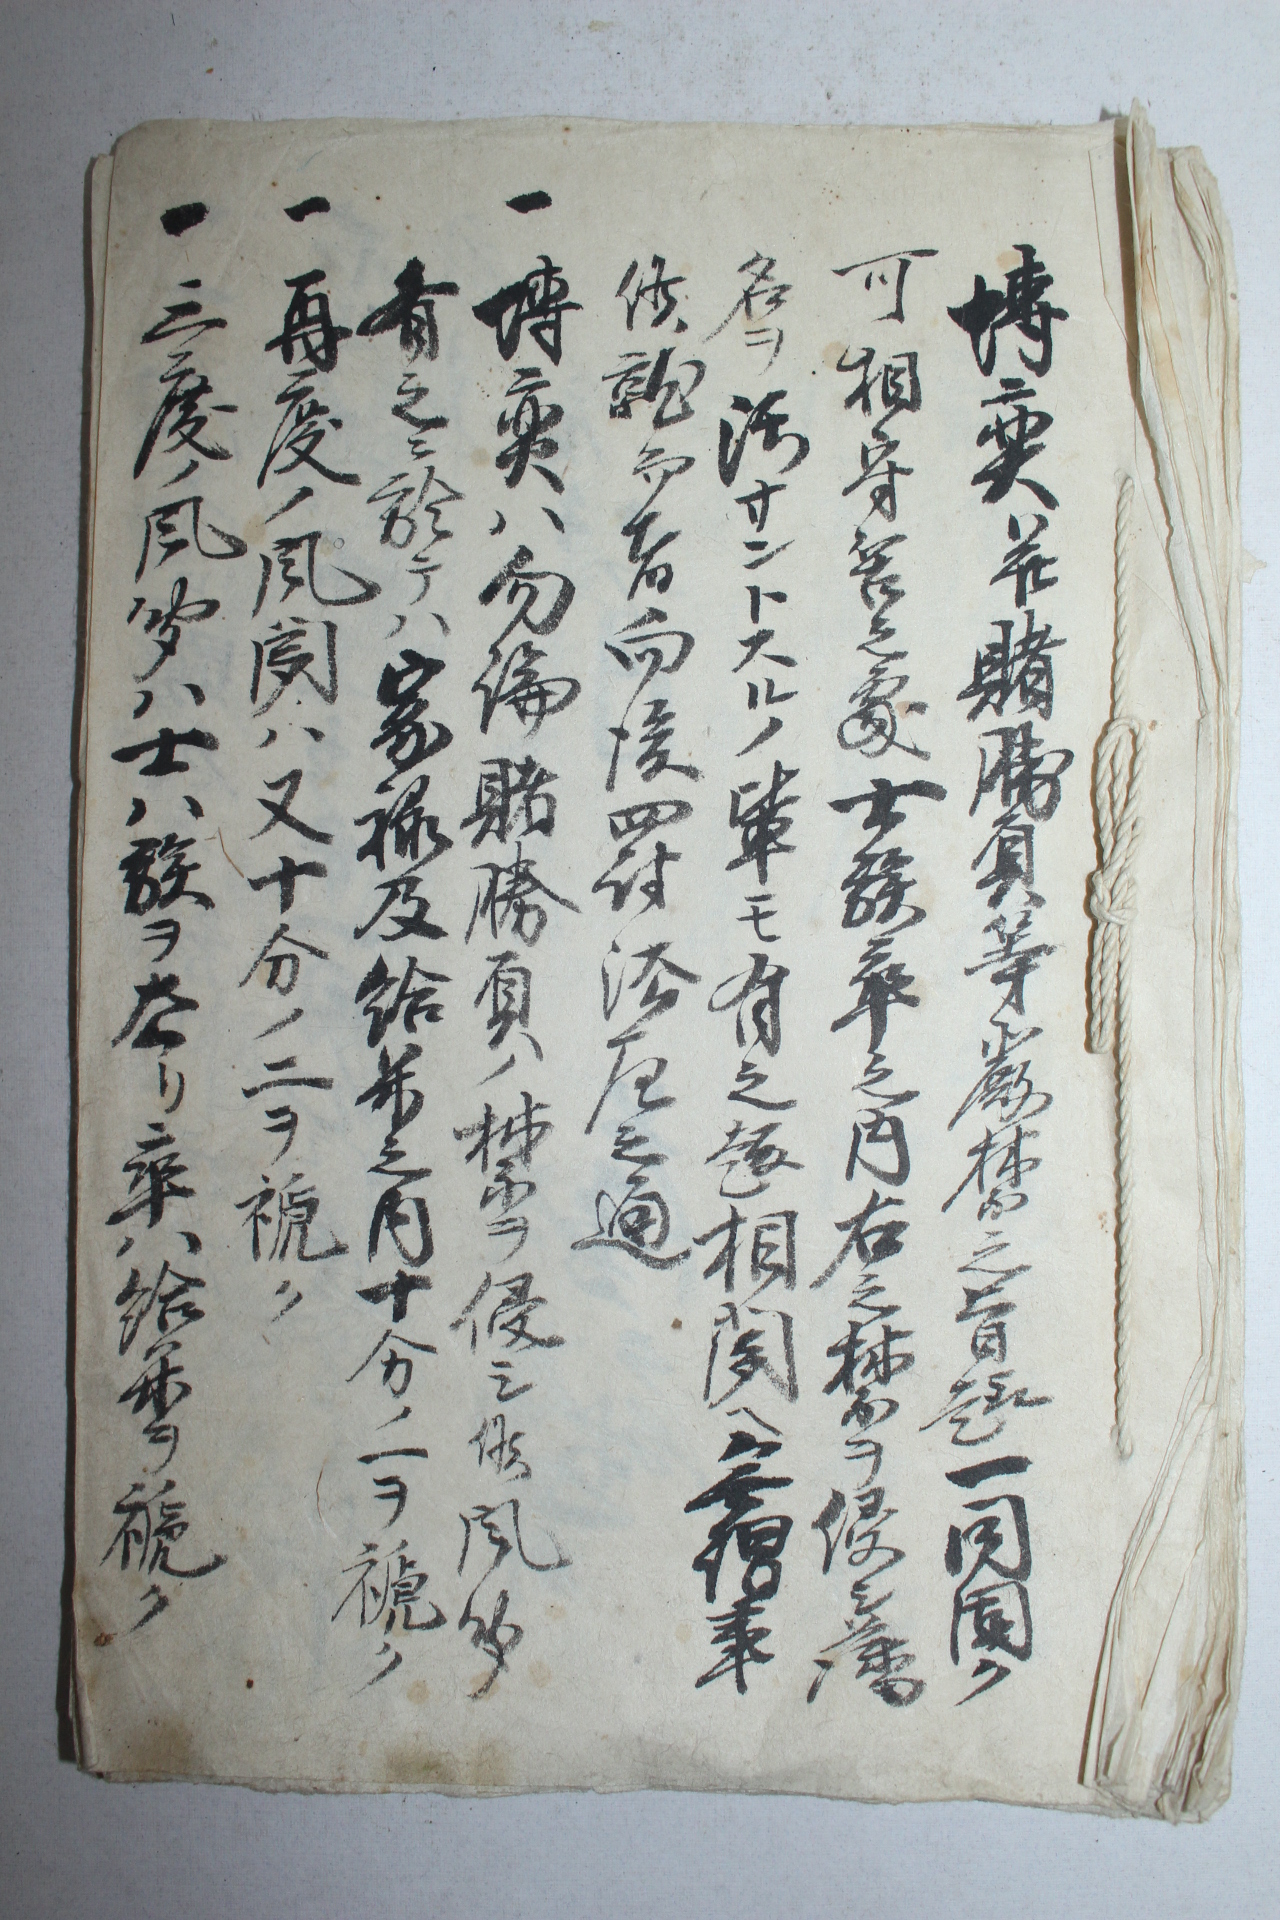 博奕并賭勝負等厳禁之旨趣一同固ク
可相守筈之處士族卒之内右之禁ヲ侵シ藩
名ヲ汚サントスルノ輩モ有之趣相聞ヘ無謂事
候龍而者向後四討法左之通
一 博奕ハ勿論賭勝負ノ禁ヲ侵シ候風聞
有之ニ於テハ家禄及給米之内十分ノ一ヲ褫ク
一 再度ノ風聞ハ又十分ノ二ヲ褫ク
一 三度ノ風聞ハ士ハ族ヲ去リ卒ハ給米ヲ褫ク